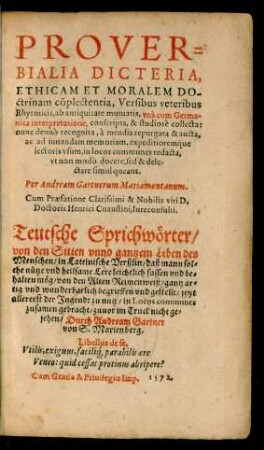 PROVER=
BIALIA DICTERIA,
ETHICAM ET MORALEM DO-
ctrinam cõplectentia, Versibus veteribus
Rhytmicis, ab antiquitate mutuatis, vnà cum Germa-
nica interpretatione, conscripta, & studiosè collecta:
nunc denuò recognita, à mendis repurgata & aucta,
ac ad iuuandam memoriam, expeditioremque
lectoris vsum, in locos communes redacta,
vt non modò docere, sed & dele-
ctare simul queant.
Per Andream Gartnerum Mariamontanum.
Cum Præfatione Clarissimi & Nobilis viri D.
Doctoris Henrici Cnaustini, Iureconsulti.
Teutsche Sprichwörter/
von den Sitten vnnd gantzem Leben des
Menschen/ in Lateinische Verslin/ daß mann sol-
che nütze vnd heilsame Lere leichtlich fassen vnd be-
halten mög/ von den Alten Reimenweiß/ gantz ar-
tig vnd wunderbarlich begrieffen vnd gestelt/ jetzt
allererst der Jugendt zu nutz/ in Locos communes
zusamen gebracht/ zuuor im Truck nicht ge-
sehen/ Durch Andream Gartner
von S. Marienberg.
Libellus de se,
Vtilis, exiguus, facilisq́; parabilis ære
Veneo: quid cessas protinus abripere?
Cum Gratia & Priuilegio Imp. 1572.